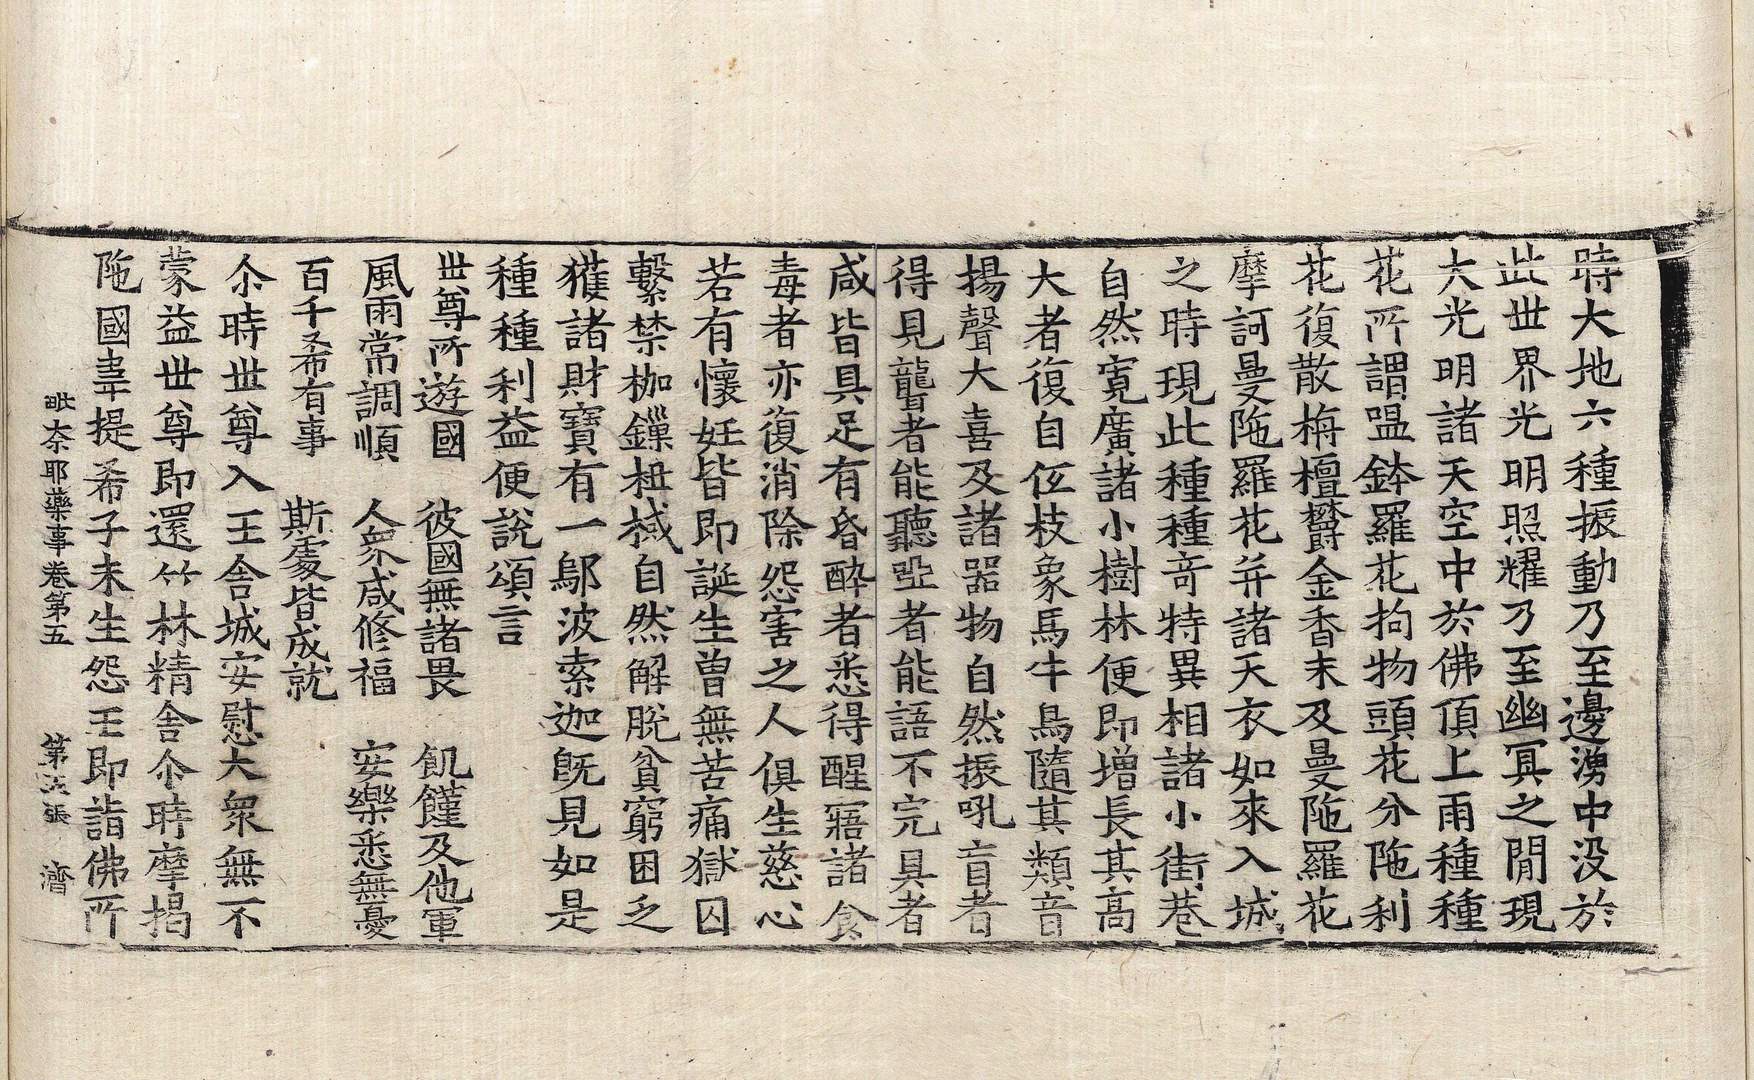 時大地六種振動乃至邊湧中沒於
此世界光明照耀乃至幽冥之閒現
大光明諸天空中於佛頂上雨種種
花所謂嗢鉢羅花拘物頭花分陁利
花復散栴檀欝金香末及曼陁羅花
摩訶曼陁羅花并諸天衣如來入城
之時現此種種奇特異相諸小街巷
自然寬廣諸小樹林便即增長其高
大者復自低枝象馬牛鳥隨其類音
揚聲大喜及諸器物自然振吼盲者
得見聾者能聽啞者能語不完具者
咸皆具足有昏醉者悉得醒寤諸食
毒者亦復消除怨害之人俱生慈心
若有懷妊皆即誕生曽無苦痛獄囚
繫禁枷鏁杻械自然解脫貧窮困乏
獲諸財寶有一鄔波索迦旣見如是
種種利益便說頌言
世尊所遊國　彼國無諸畏　飢饉及他軍
風雨常調順　人衆咸修福　安樂悉無憂
百千希有事　斯處皆成就
尒時世尊入王舍城安慰大衆無不
蒙益世尊即還竹林精舍尒時摩揭
陁國韋提希子未生怨王即詣佛所
毗奈耶藥事卷第五　第　張　濟